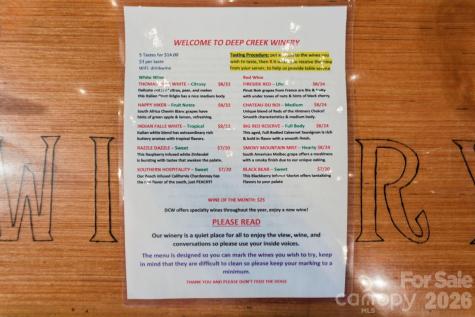 WELCOME TO DEEP CREEK WINERY
5 Tastes for $14.00
$3 per taste
WIFI: drinkwine
Tasting Procedure: put a to the wines you
wish to taste, then it is to receive the
from your server, to help us provide table service
White Wine
THOMAS WHITE – Citrusy $8/32
Delicate of citrus, pear, and melon
this Italian Pinot Grigio has a nice medium body.
HAPPY HIKER – Fruit Notes $8/32
South Africa Chenin Blanc grapes have
hints of green apple & lemon, refreshing.
INDIAN FALLS WHITE – Tropical $8/32
Italian white blend has extraordinary rich
buttery aromas with tropical flavors.
RAZZLE DAZZLE – Sweet $7/20
This Raspberry infused white Zinfandel
is bursting with tastes that awaken the palate.
SOUTHERN HOSPITALITY – Sweet $7/20
Our Peach infused California Chardonnay has
the flavor of the south, just PEACHY!
Red Wine
FIRESIDE RED – $8/34
Pinot Noir grapes from France are this &
with under tones of nuts & hints of black cherry.
CHATEAU DU BOI – Medium $8/34
Unique blend of Reds of the Vintners Choice!
Smooth characteristics & medium body.
BIG RED RESERVE – Full Body $8/34
This aged, Full Bodied Cabernet Sauvignon is rich
& bold in flavor with a smooth finish.
SMOKY MOUNTAIN MIST – Hearty $8/34
South American Malbec grape offers a mouthful
with a smoky finish due to our unique oaking.
BLACK BEAR – Sweet $7/20
This Blackberry infused Merlot offers tantalizing
flavors to your palate
WINE OF THE MONTH: $25
DCW offers specialty wines throughout the year, enjoy a new wine!
PLEASE READ
Our winery is a quiet place for all to enjoy the view, wine, and
conversations so please use your inside voices.
The menu is designed so you can mark the wines you wish to try, keep
in mind that they are difficult to clean so please keep your marking to a
minimum.
THANK YOU AND PLEASE DON'T FEED THE DOGS
WI ERY
For Sale
canopy 2026
MLS